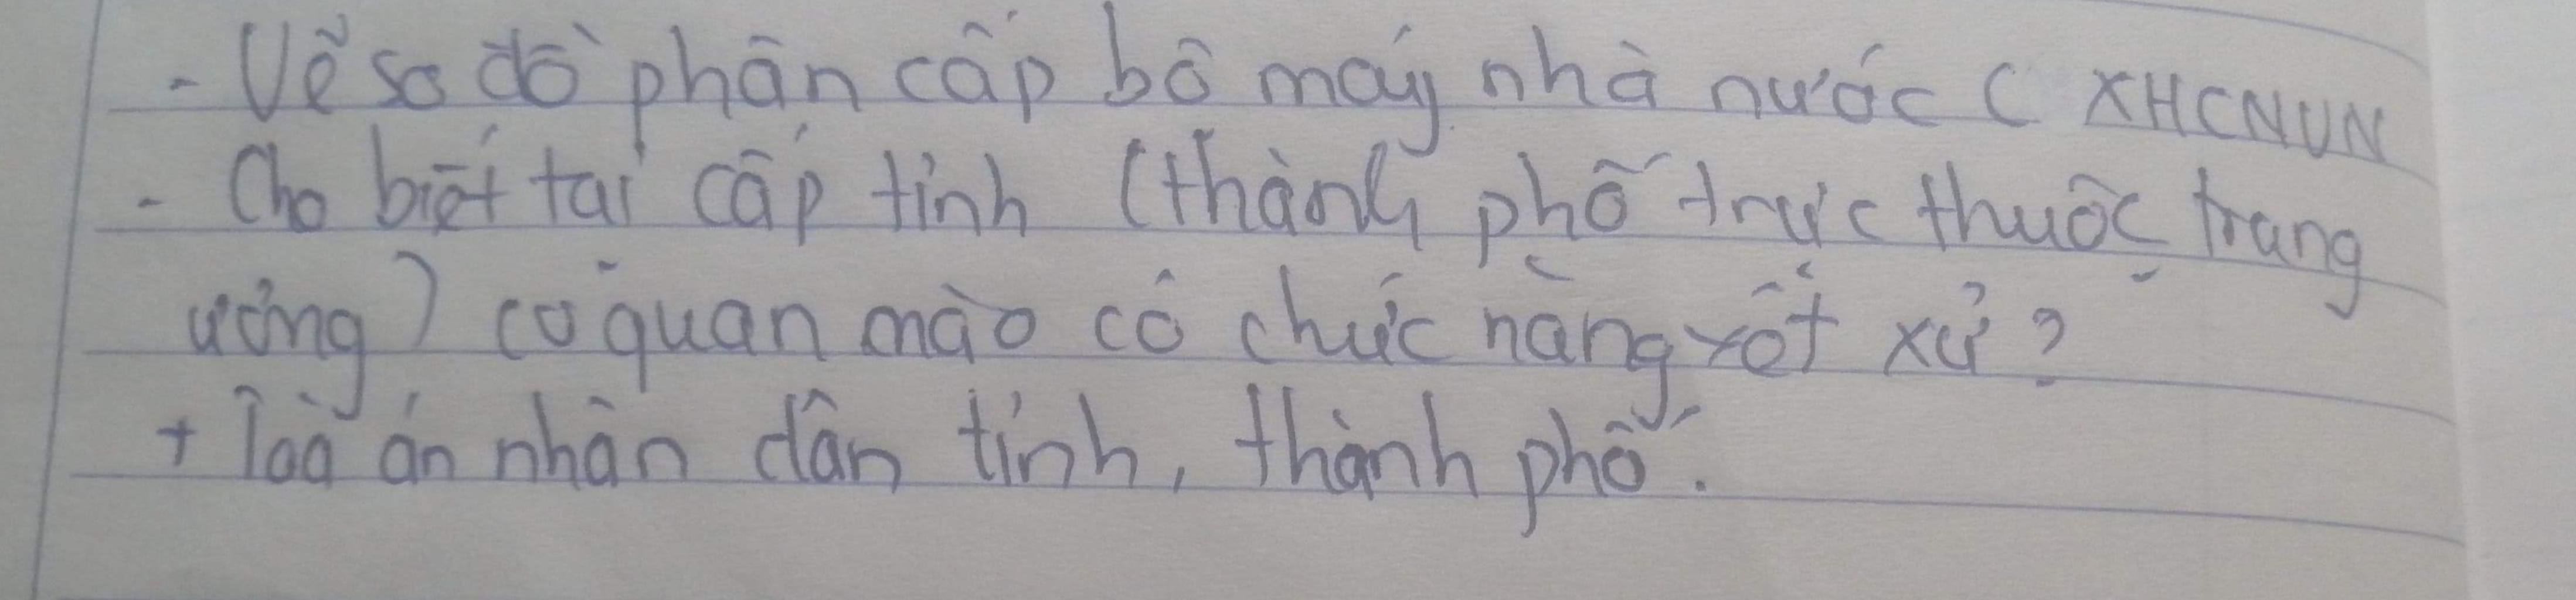 - Vẽ sơ đồ phân cấp bô máy nhà nước C XHCNVN
- Cho biết tại cấp tỉnh (thành phố trực thuộc trung
ương) cơ quan nào có chức năng xét xử?
+ Toà án nhân dân tỉnh, thành phố.